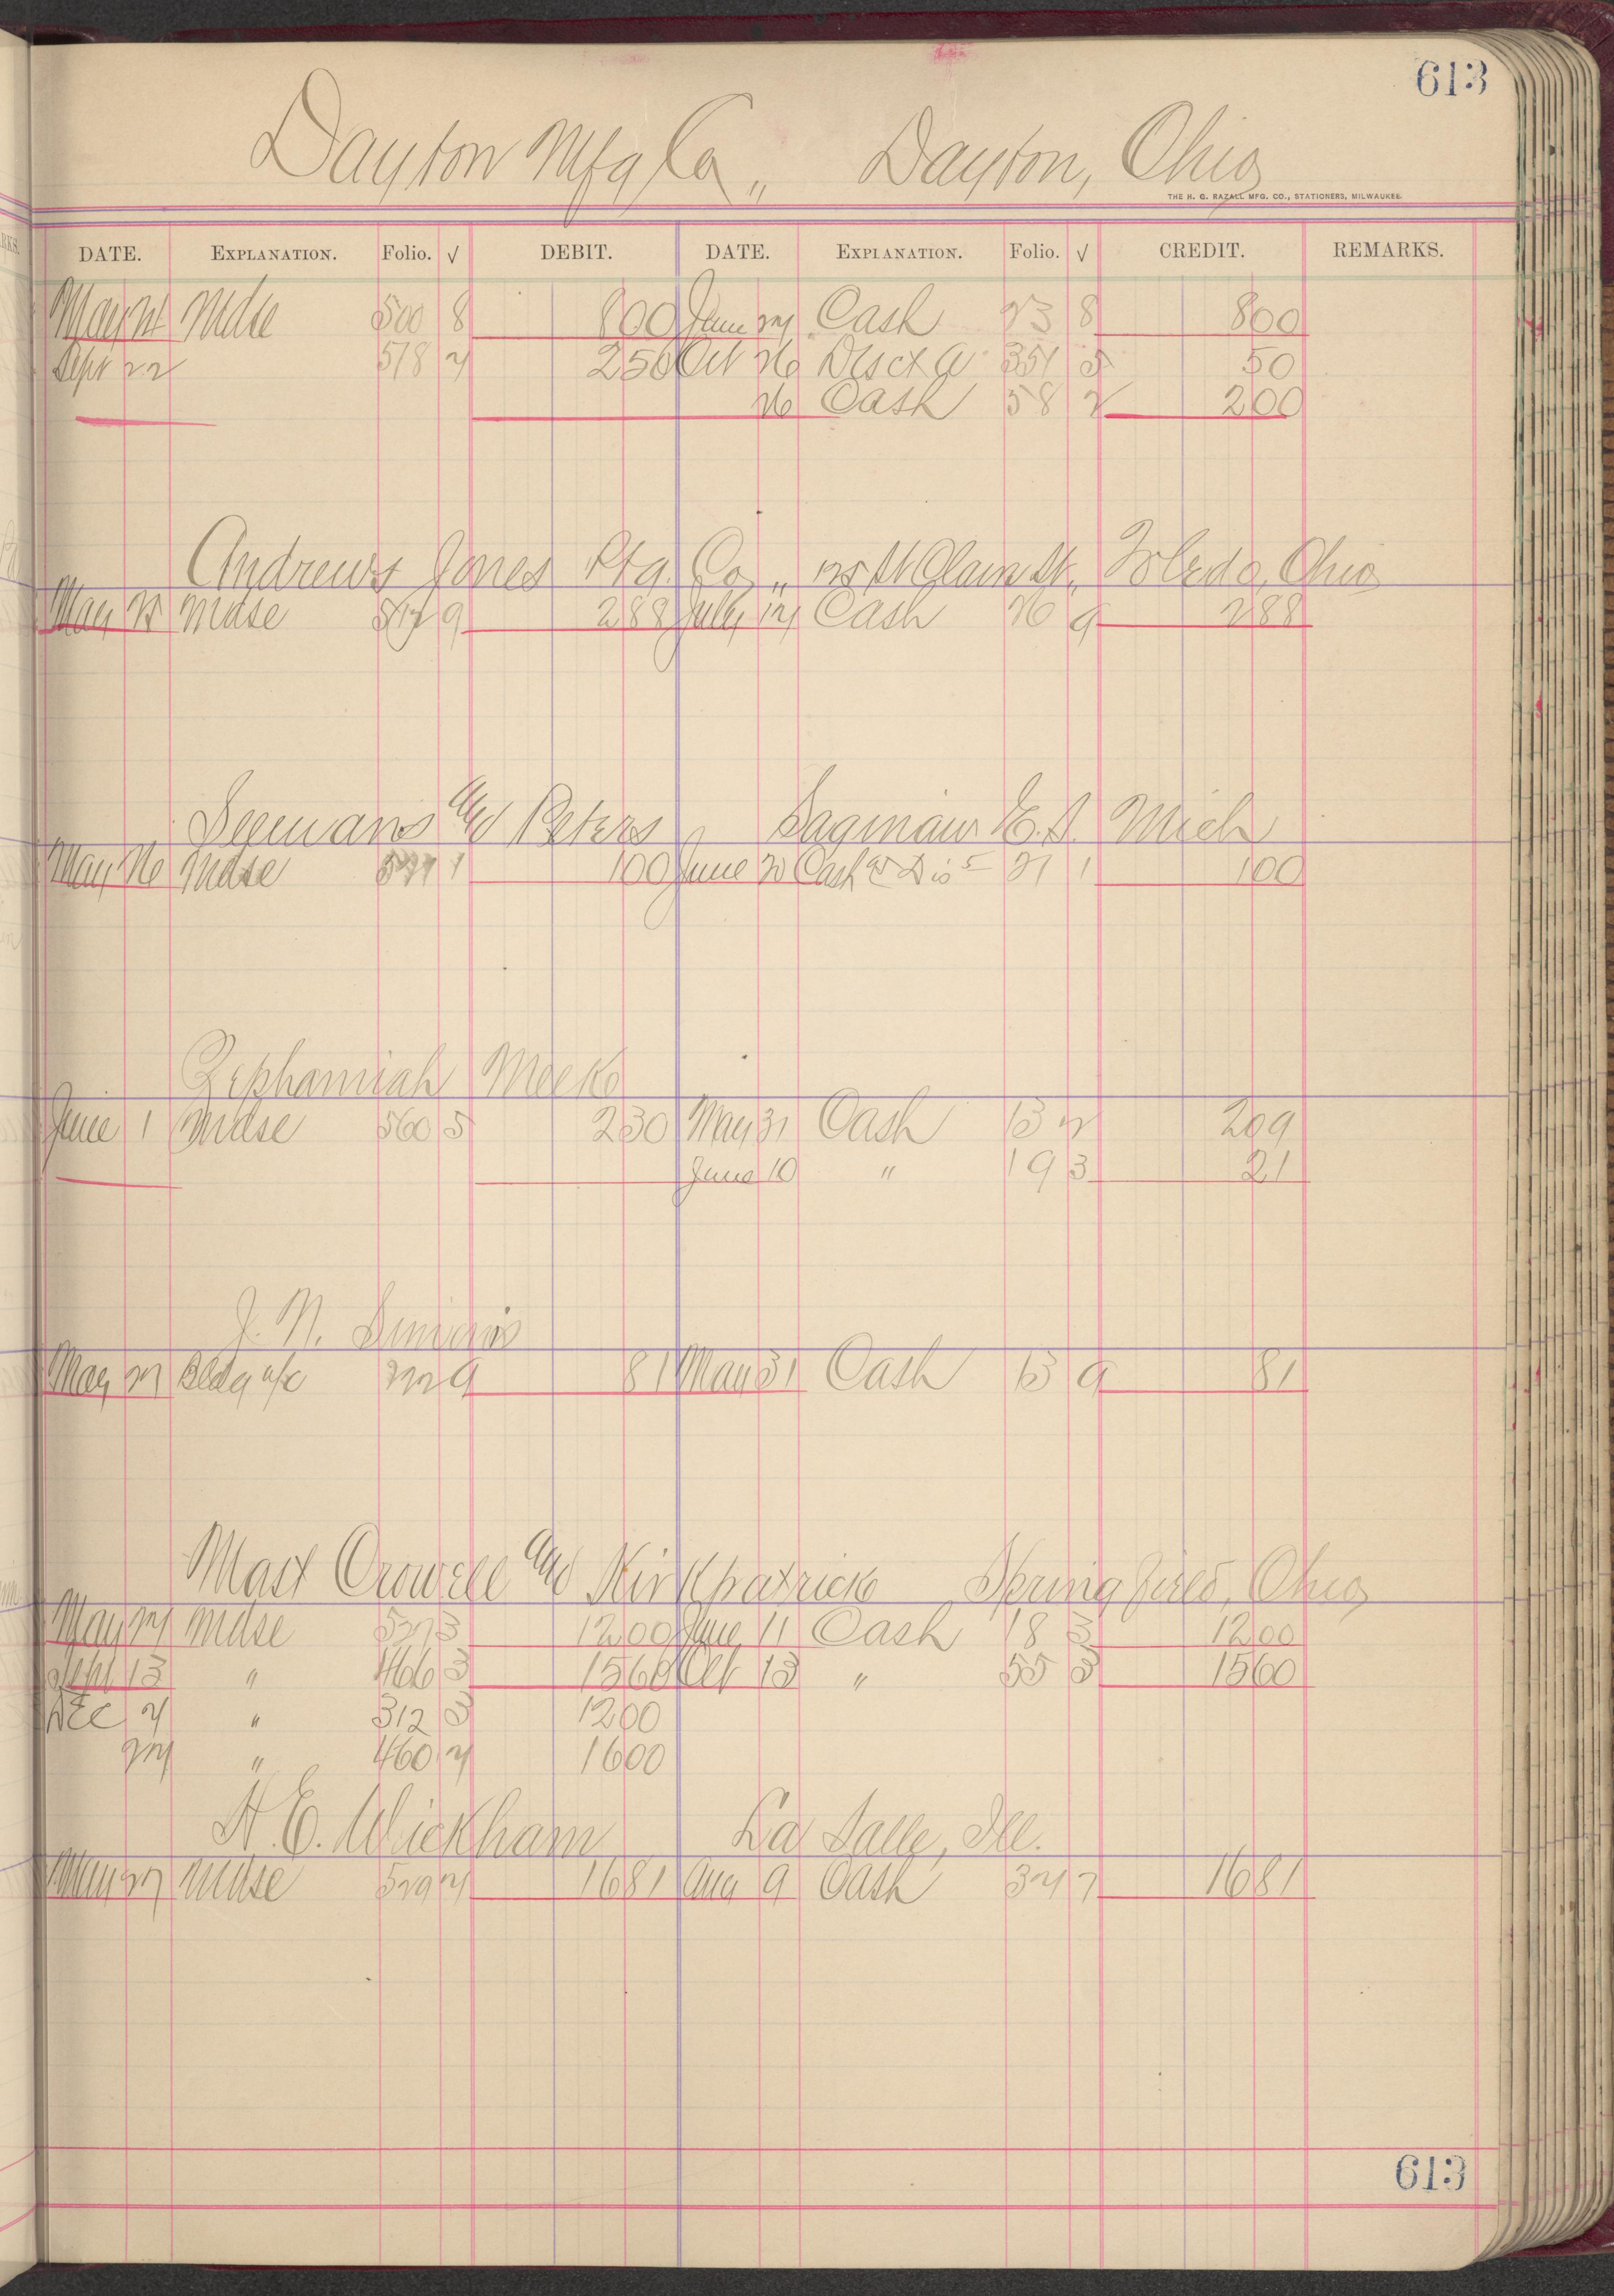 613
Dayton Mfg Co,, Dayton, Ohio
THE H. G. RAZALL MFG. CO., STATIONERS, MILWAUKEE.
DATE. EXPLANATION. Folio. √ DEBIT. DATE. EXPLANATION. Folio. √ CREDIT. REMARKS.
May Mdse 500 8 800 June Cash 23 8 800
Sept 22 518 250 Oct 26 351 5 50
26 Cash 58 2 200
Andrews Jones Co,, St Clair St, Toledo, Ohio
May 25 Mdse 9 288 July Cash 26 9 288
Seemans and Peters Saginaw E.S. Mich
May 26 Mdse 1 100 June 20 Cash & Dis 21 1 100
Zephaniah Meek
June 1 Mdse 560 5 230 May 31 Cash 13 209
June 10 " 19 3 21
J. N.
May 27 Bldg a/c 9 81 May 31 Cash 13 9 81
Mast Crowell and Kirkpatrick Springfield, Ohio
May Mdse 3 1200 June 11 Cash 18 3 1200
Sept 13 " 466 3 1560 Oct 13 " 55 3 1560
Dec " 312 3 1200
" 460 1600
H. E. Wickham La Salle, Ill.
May 27 Mdse 1681 Aug 9 Cash 1681
613